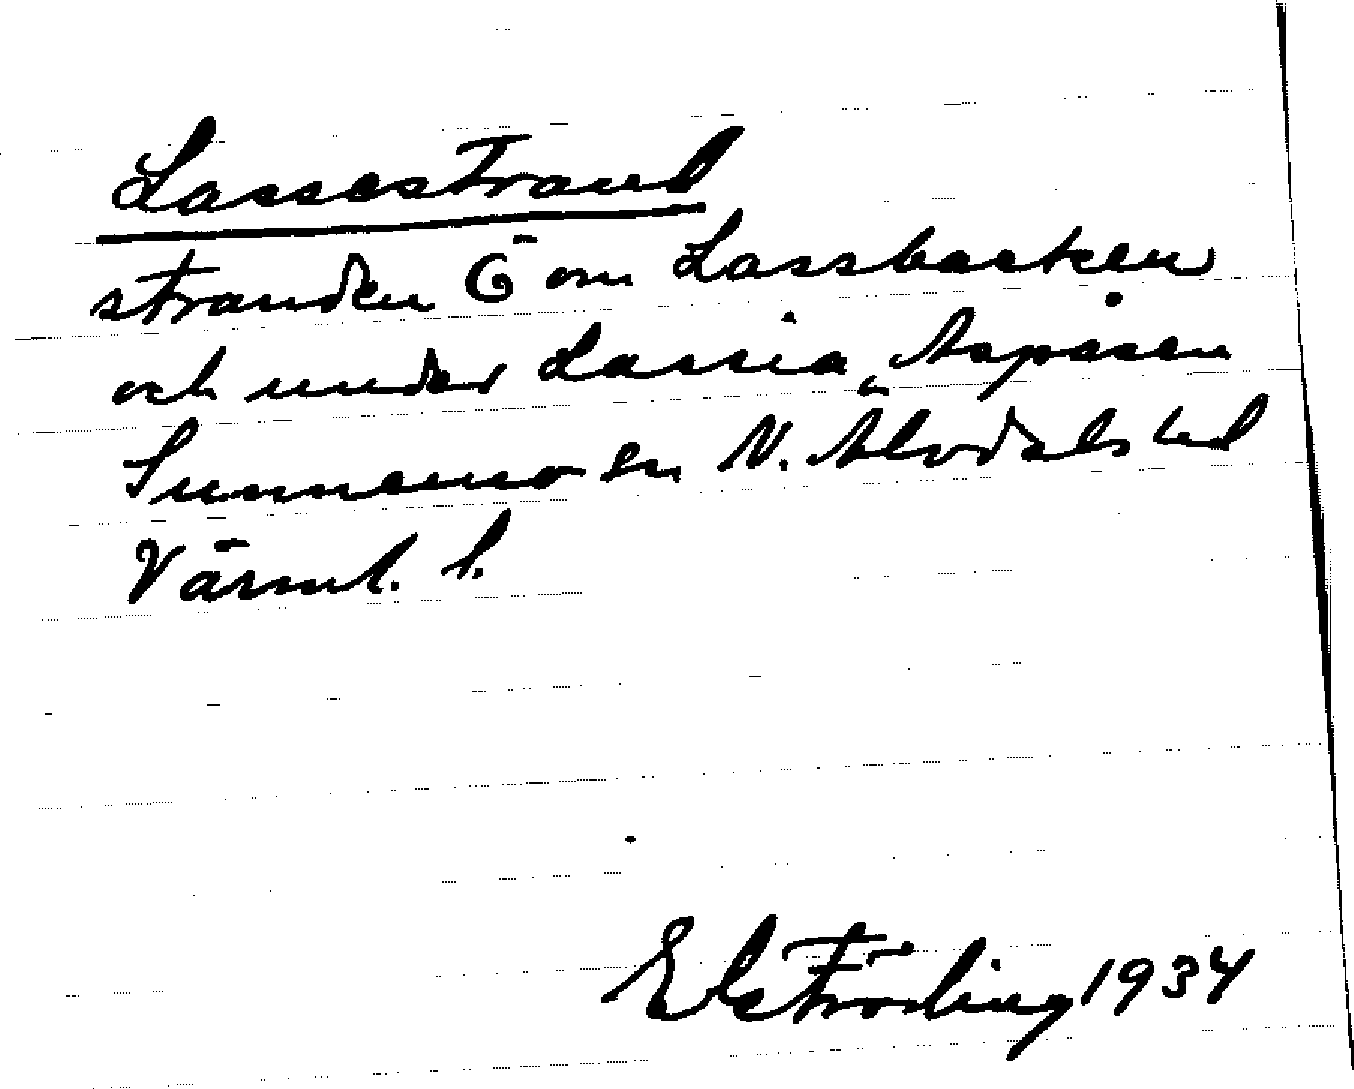 Lassestrand
stranden Ö om Lassbacken
och under Lassia, Aspåsen
Sunnemo sn N. Älvdals hd
Värml. l.
Fröding 1934